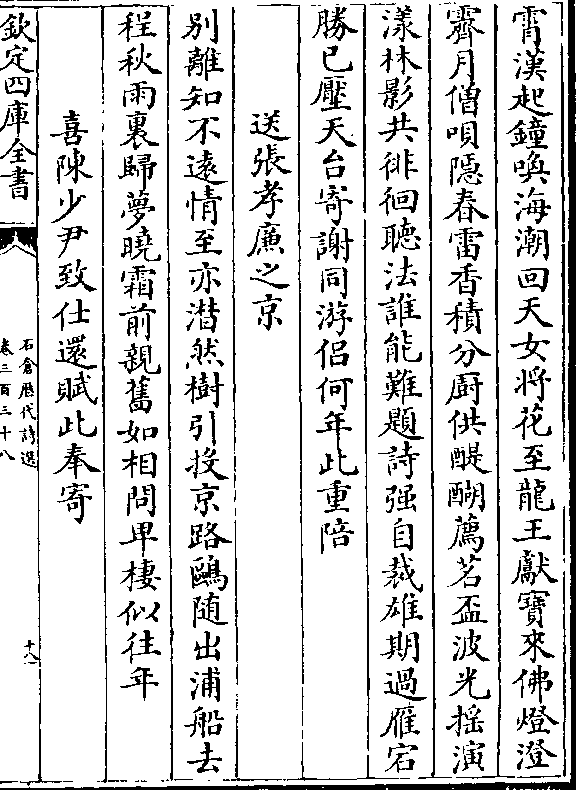 霄漢起鐘喚海潮回天女將花至龍王獻寳來佛燈澄
霽月僧唄隠春雷香積分厨供醍醐薦茗盃波光揺演
漾林影共徘徊聽法誰能難題詩强自裁雄期過雁宕
勝已壓天台寄謝同游侣何年此重陪
送張孝亷之京
别離知不逺情至亦潸然樹引投京路鷗随出浦船去
程秋雨裏歸夢曉霜前親舊如相問卑棲似往年
喜陳少尹致仕還賦此奉寄
欽定四庫全書
石倉歴代詩選
卷三百三十八
十八